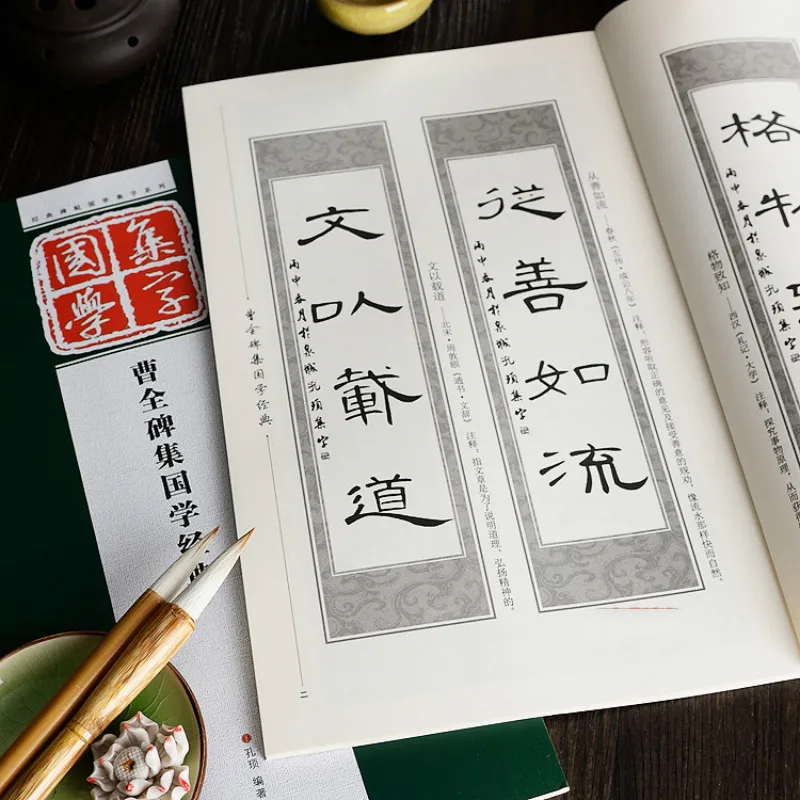 经典碑帖国学集字系列
集字
國學
曹全碑集国学经典
孔琐 编著
從善如流
丙申春月於泉城孔琐集字
从善如流 ——春秋《左传·成公八年》 注释：形容听取正确的意见及接受善意的规劝，像流水那样快而自然。
文以載道
丙申春月於泉城孔琐集字
文以载道 ——北宋·周敦颐《通书·文辞》 注释：指文章是为了说明道理、弘扬精神的。
曹全碑集国学经典
二
格物
丙申春月於泉城孔琐集
格物致知 ——西汉《礼记·大学》 注释：探究事物原理，从而获